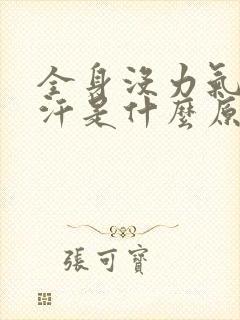 全身没力氣
汗是什麼原
張可寶